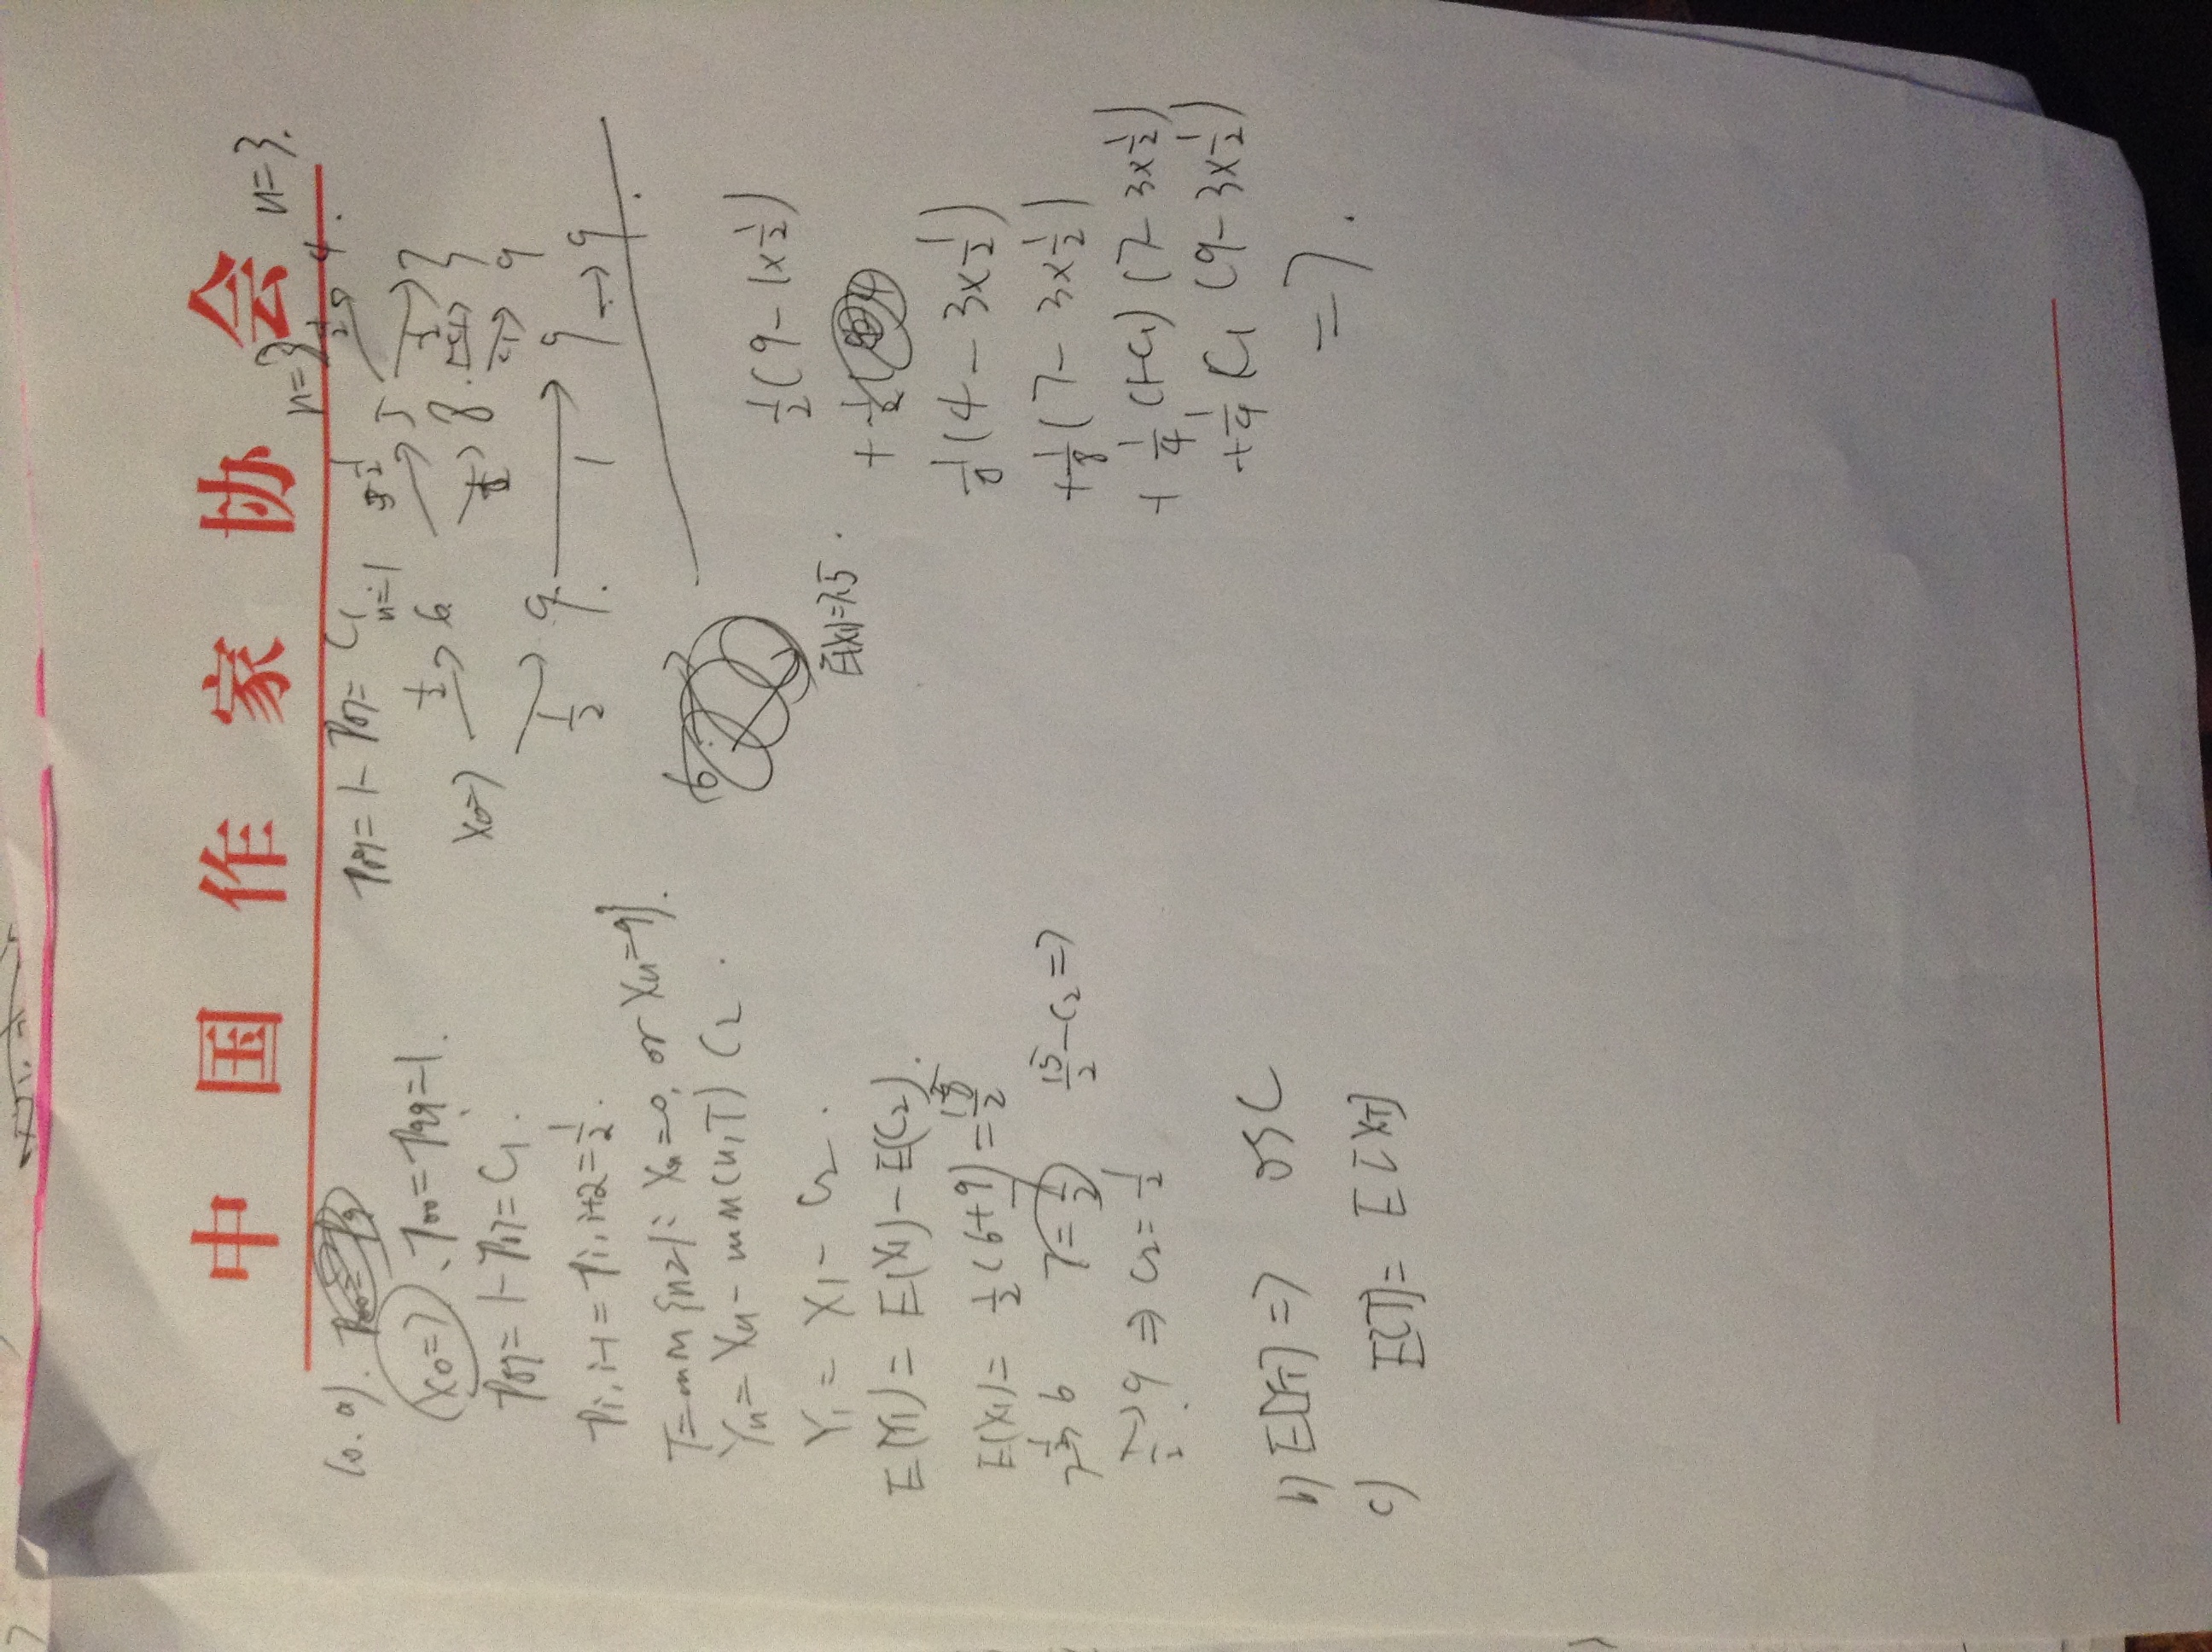 中国作家协会
n=3 n=3.
10. a).
X0=7、P00=P99=1.
P89=1-P87=C1.
Pi,i-1=Pi,i+2=1/2.
T=min{n≥1: Xn=0, or Xn=9}.
Yn=Xn-min(n,T)C2.
Y1=X1-C2.
E(Y1)=E(X1)-E(C2).
E(X1)=1/2(6+9)=15/2
15/2-C2=7
1/2→9 ⇒ C2=1/2
b) E[YT]=7 OSC
c) E[T]=E[XT]
P89=1-P87=C1
n=1
1/2→4.
X0=7 1/2→6 1/2→5 1/2→7
1/2→8 1-C1→7
C1→9
1/2→9. 1→9→9.
E(X1)=7.5.
1/2(9-1×1/2)
1/8(4-3×1/2)
+1/8(7-3×1/2)
+1/4(1-C1)(7-3×1/2)
+1/4C1(9-3×1/2)
=7.